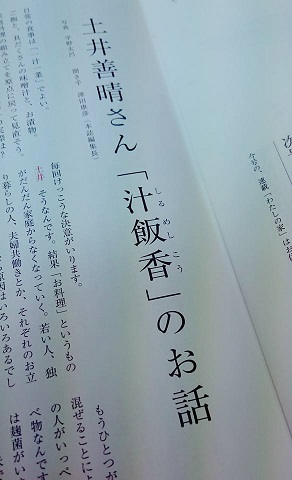 土井善晴さん「汁飯香」のお話
しる めし こう
写真 宇野太郎 聞き手 澤田康彦(本誌編集長)
日常の食事は「一汁一菜」でよい。
ご飯と、具だくさんの味噌汁と、お漬物。
料理の組み立てを原点に戻って見直そう。
毎回けっこうな決意がいります。
土井 そうなんです。結果「お料理」というもの
がだんだん家庭からなくなっていく。若い人、独
り暮らしの人、夫婦共働きとか、それぞれのお立
原因はいろいろあるでし
もうひとつが
混ぜることによ
の人がいっぺ
べ物なんです
は麹菌がい
次号
今号の、連載「わたしの家」はお休